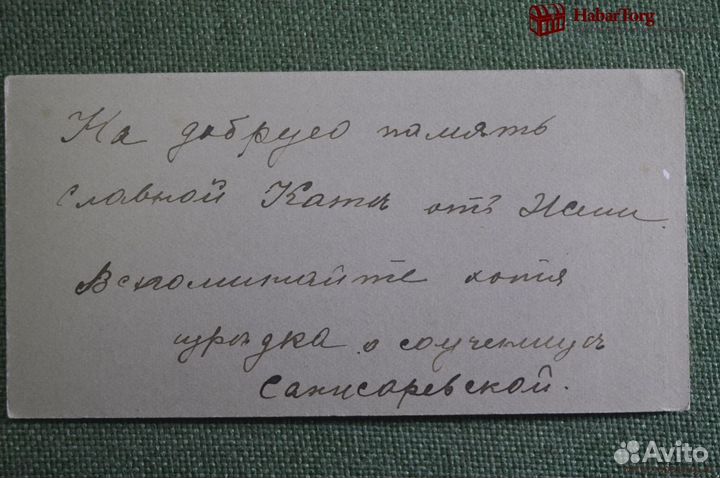 HabarTorg
На добрую память
славной Катѣ отъ Нети.
Вспоминайте хотя
изрѣдка о соученицѣ
Сансаревской.
Avito